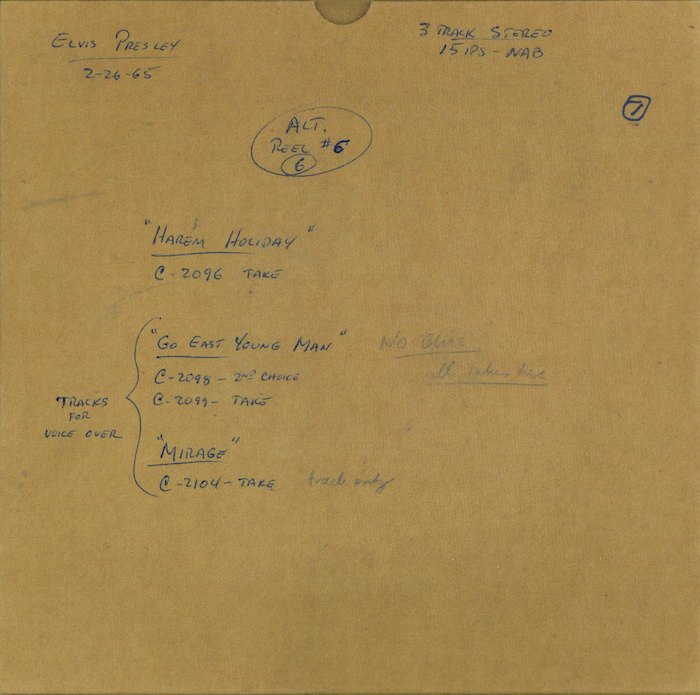 ELVIS PRESLEY
2-26-65
3 TRACK STEREO
15 IPS - NAB
7
ALT.
REEL #6
6
"HAREM HOLIDAY"
C-2096 TAKE
"GO EAST YOUNG MAN"
No Elvis
C-2098 - 2ND CHOICE
all takes here
C-2099 - TAKE
TRACKS
FOR
VOICE OVER
"MIRAGE"
C-2104 - TAKE track only